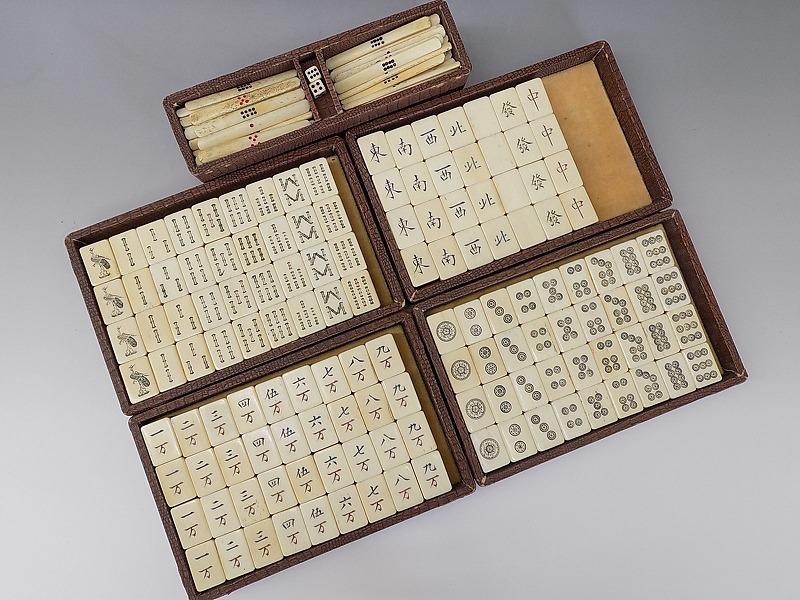 東 南 西 北 發 中
東 南 西 北 發 中
東 南 西 北 發 中
東 南 西 北 發 中
一万 二万 三万 四万 伍万 六万 七万 八万 九万
一万 二万 三万 四万 伍万 六万 七万 八万 九万
一万 二万 三万 四万 伍万 六万 七万 八万 九万
一万 二万 三万 四万 伍万 六万 七万 八万 九万